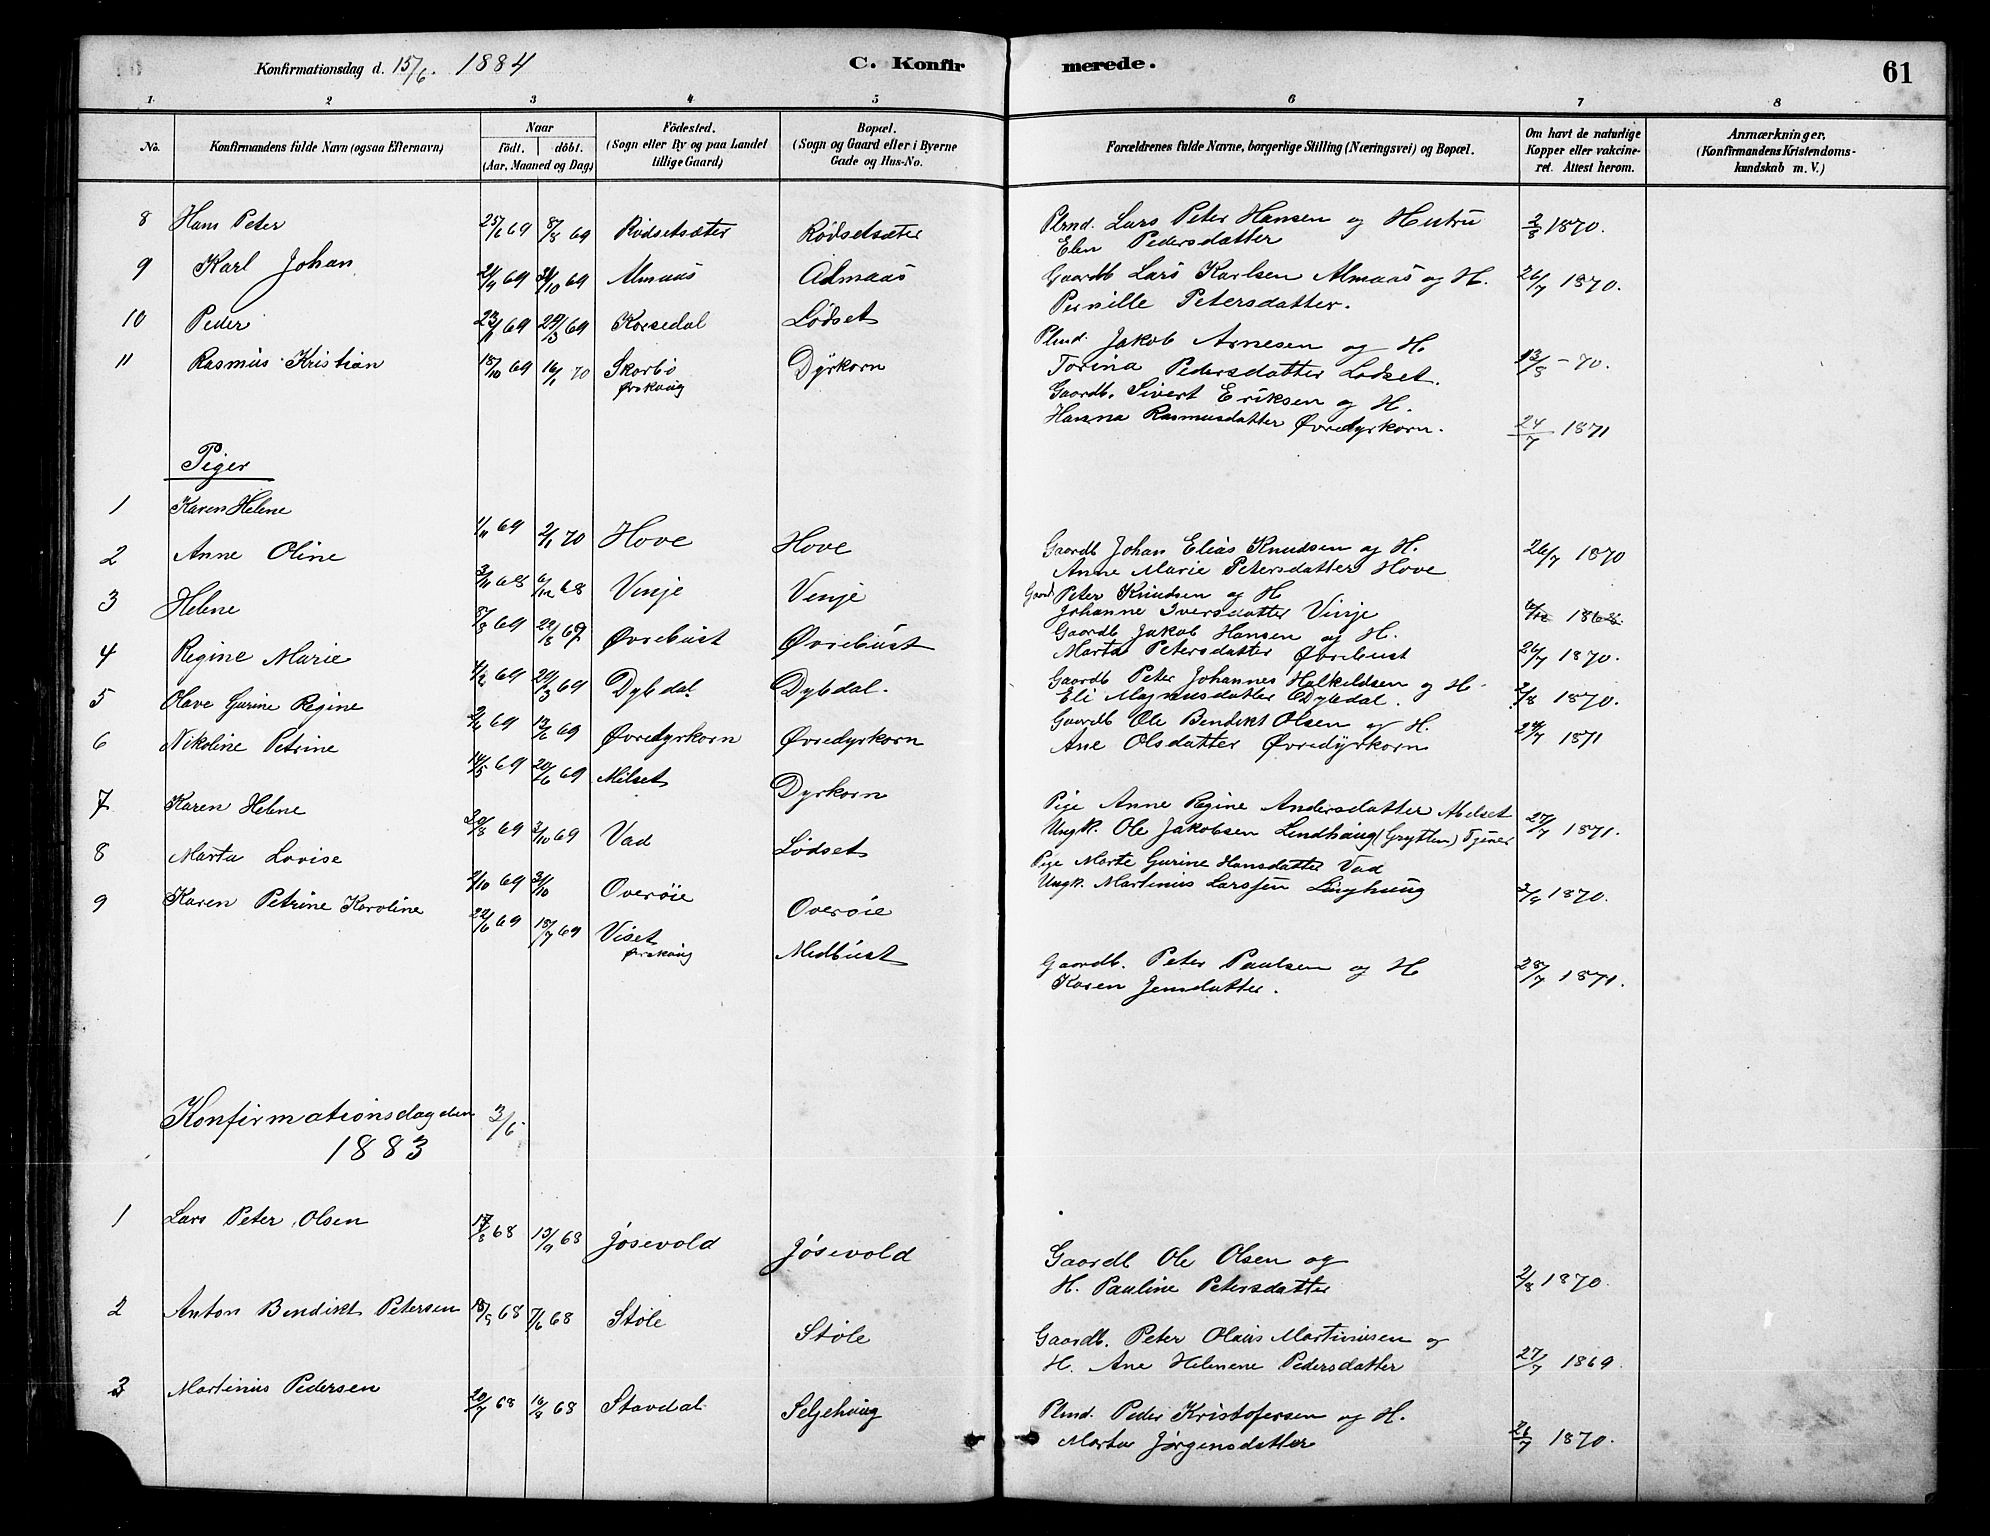 Konfirmationsdag d. 15/6. 1884
C. Konfirmerede.
61
1. 2 3 4 5 6 7 8
No.
Konfirmandens fulde Navn (ogsaa Efternavn)
Naar
födt. döbt.
(Aar, Maaned og Dag)
Födested.
(Sogn eller By og paa Landet
tillige Gaard)
Bopæl.
(Sogn og Gaard eller i Byerne
Gade og Hus-No.
Forældrenes fulde Navne, borgerlige Stilling (Næringsvei) og Bopæl.
Om havt de naturlige
Kopper eller vakcine-
ret. Attest herom.
Anmærkninger,
(Konfirmandens Kristendoms-
kundskab m. V.)
8 Hans Peter 25/6 69 8/8 69 Rödsetsæter Rødsetsæter Plmd. Lars Peter Hansen og Hustru
Elen Pedersdatter 2/8 1870.
9 Karl Johan 69 /10 69 Almaas Almaas Gaardb Lars Karlsen Almaas og H.
Pernille Petersdatter. 26/7 1870.
10 Peder 69 /3 69 Korsedal Lødset Plmd. Jakob Arnesen og H.
Torina Pedersdatter Lødset. 13/8 - 70.
11 Rasmus Kristian 18/10 69 16/1 70 Skorbö
Ørskoug Dÿrkorn Gaardb. Sivert Eriksen og H.
Hanna Rasmusdatter Øvredyrkorn. 24/7 1871
Piger
1 Karen Helene 1/11 69 2/1 70 Hove Hove Gaardb Johan Elias Knudsen og H.
Anne Marie Petersdatter Hove 26/7 1870
2 Anne Oline 3/11 68 6/12 68 Vinje Vinje Gaardb Peter Knudsen og H
Johanne Iversdatter Vinje 6/12 1868.
3 Helene 8/8 69 22/8 69 Øvrebust Øvrebust Gaardb Jakob Hansen og H.
Marta Petersdatter Øvrebust 26/7 1870.
4 Regine Marie 4/2 69 29/3 69 Dybdal Dybdal. Gaardb Peter Johannes Halkildsen og H.
Eli Magnusdatter Dybdal. 2/8 1870.
5 Olave Gurine Regine 69 13/6 69 Øvredyrkorn Øvredyrkorn Gaardb Ole Bendikt Olsen og H.
Ane Olsdatter Øvredÿrkorn 24/7 1871
6 Nikoline Petrine 14/5 69 20/6 69 Milset Dyrkorn Pige Anne Regine Andersdatter Melset
Ungk. Ole Jakobsen Lindhaug (Grytten) Tjener 27/7 1871.
7 Karen Helene 30/8 69 3/10 69 Vad Lødset Pige Marte Gurine Hansdatter Vad
Ungk. Martinus Larssen Linghaug 2/9 1870.
8 Marta Lovise 2/10 69 31/10 Overöie Overöie
9 Karen Petrine Karoline 22/6 69 18/7 69 Viset
Ørskoug Medbust Gaardb. Peter Paulsen og H
Karen Jensdatter. 28/7 1871.
Konfirmationsdag den 3/6
1883
1 Lars Peter Olsen 17/8 68 13/9 68 Jøsevold Jøsevold Gaardb Ole Olsen og
H. Pauline Petersdatter 2/8 1870.
2 Anton Bendikt Petersen 18/5 68 7/6 68 Støle Støle Gaardb. Peter Olaus Martinusen og
H. Ane Helmene Pedersdatter 27/7 1869.
3 Martinus Pedersen 20/7 68 16/8 68 Stavdal Seljehaug Plmd. Peder Kristofersen og H.
Marta Jørgensdatter 26/7 1870.